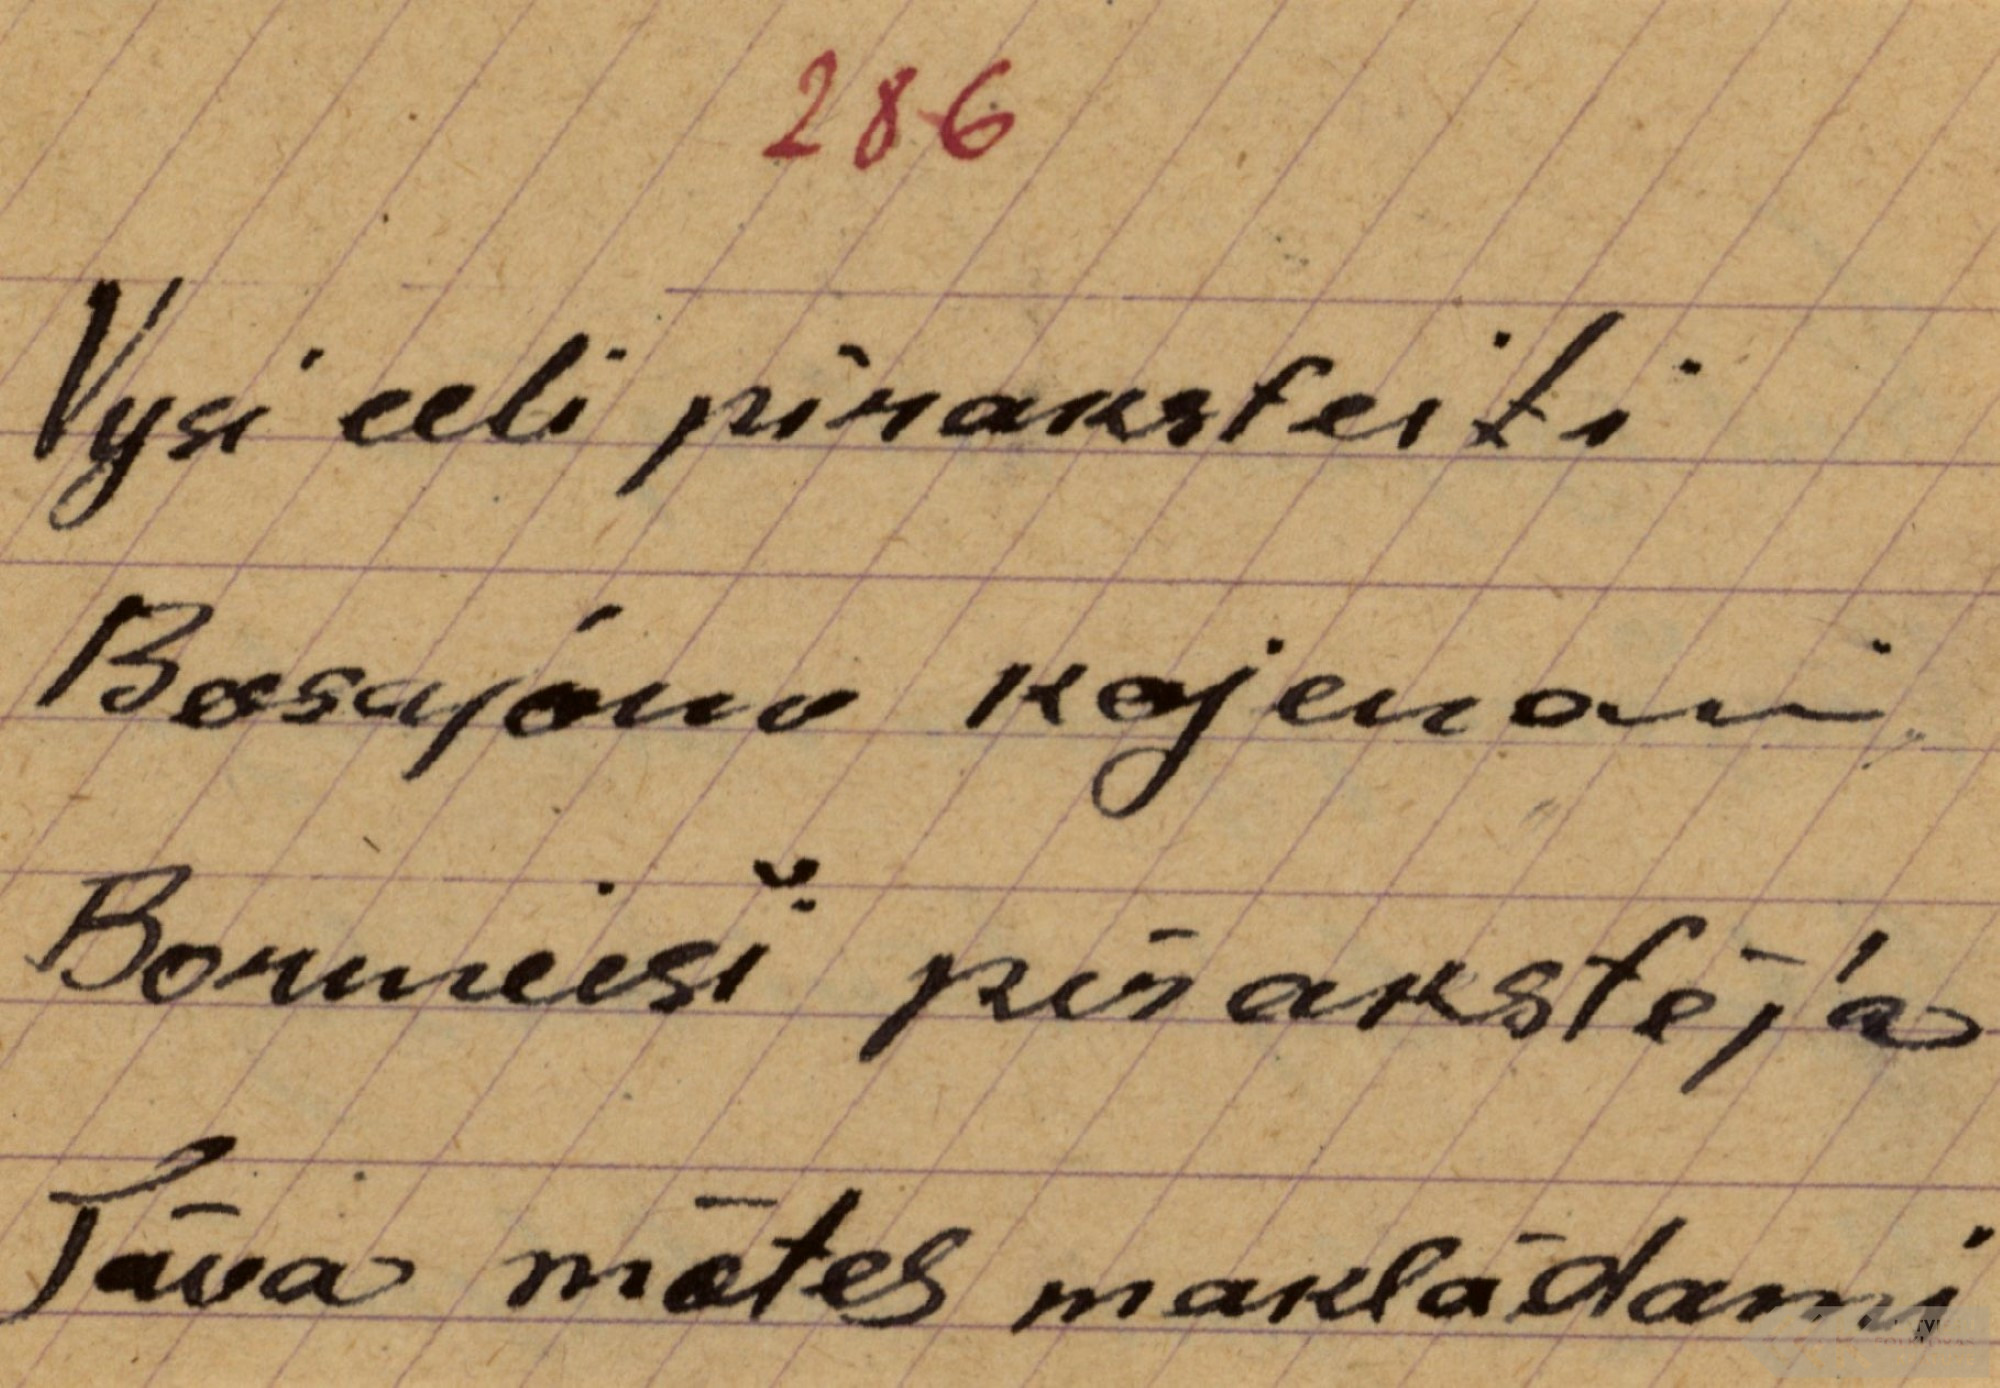 286
Vysi celi pīraksteiti
Basajómo kojenom
Borineiši pīrakstēja
Tāva mōtes maklādami